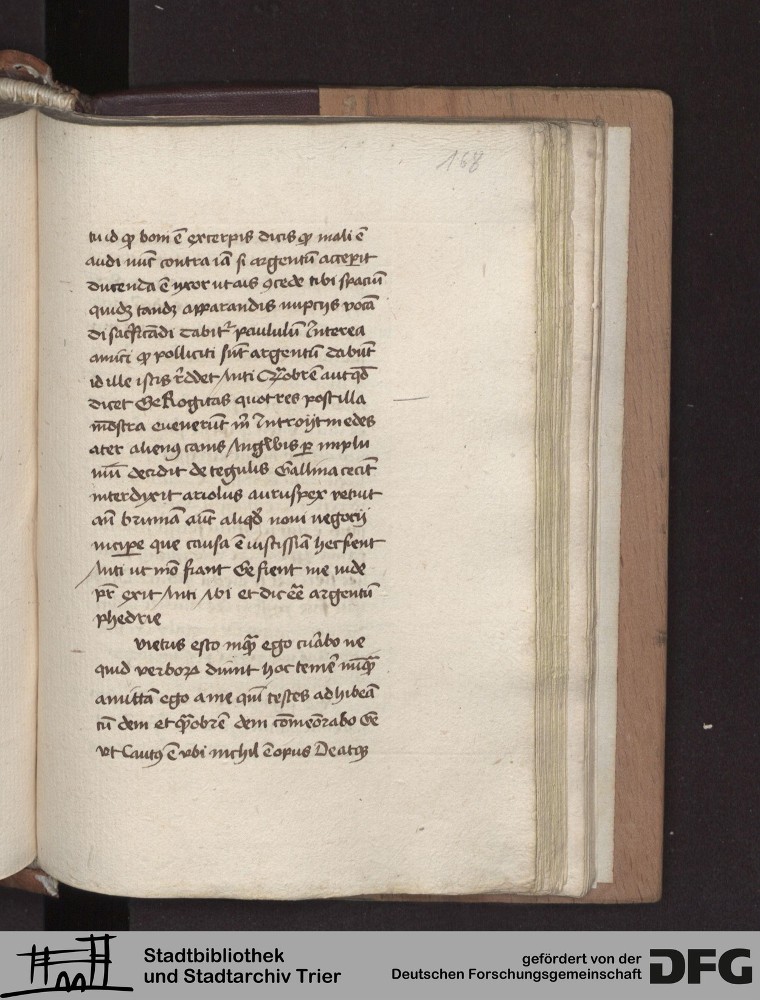 168
tu id qđ boni ē excerpis dicis qđ mali ē
audi nūc contra iā si argentū acceꝑit
ducenda ē uxor ut ais ꝯcede tibi spaciū
quidꝫ tandꝫ apparandis nuptijs vocā
di sacrificādi dabitᷣ paululū Interea
amici qđ polliciti sūt argentū dabūt
id ille istis rͤddet Anti Qᷓobrē aut qđ
dicet Ge Rogitas quot res post illa
mōstra evenerūt mͥ Introijt in edes
ater alienꝰ canis Anguis ꝑ implu
uiū decidit de tegulis Gallina cecīt
interdixit ariolus auruspex vetuit
añ brumā aūt aliqđ noui negocij
incipe que causa ē iustissīa hec fient
Anti ut mō fiant Ge fient me vide
pr̄ exit Anti Abi et dic eē argentū
phedrie
Uietus esto inqᷓ ego curabo ne
quid verborꝝ duint hoc temerͤ nūqᷓ
amittā ego a me quī testes adhibeā
cū dem et qᷓobrē dem cōmeōrabo Ge
vt Cautꝰ ē vbi nichil ē opus De atqꝫ
Stadtbibliothek
und Stadtarchiv Trier
gefördert von der
Deutschen Forschungsgemeinschaft
DFG